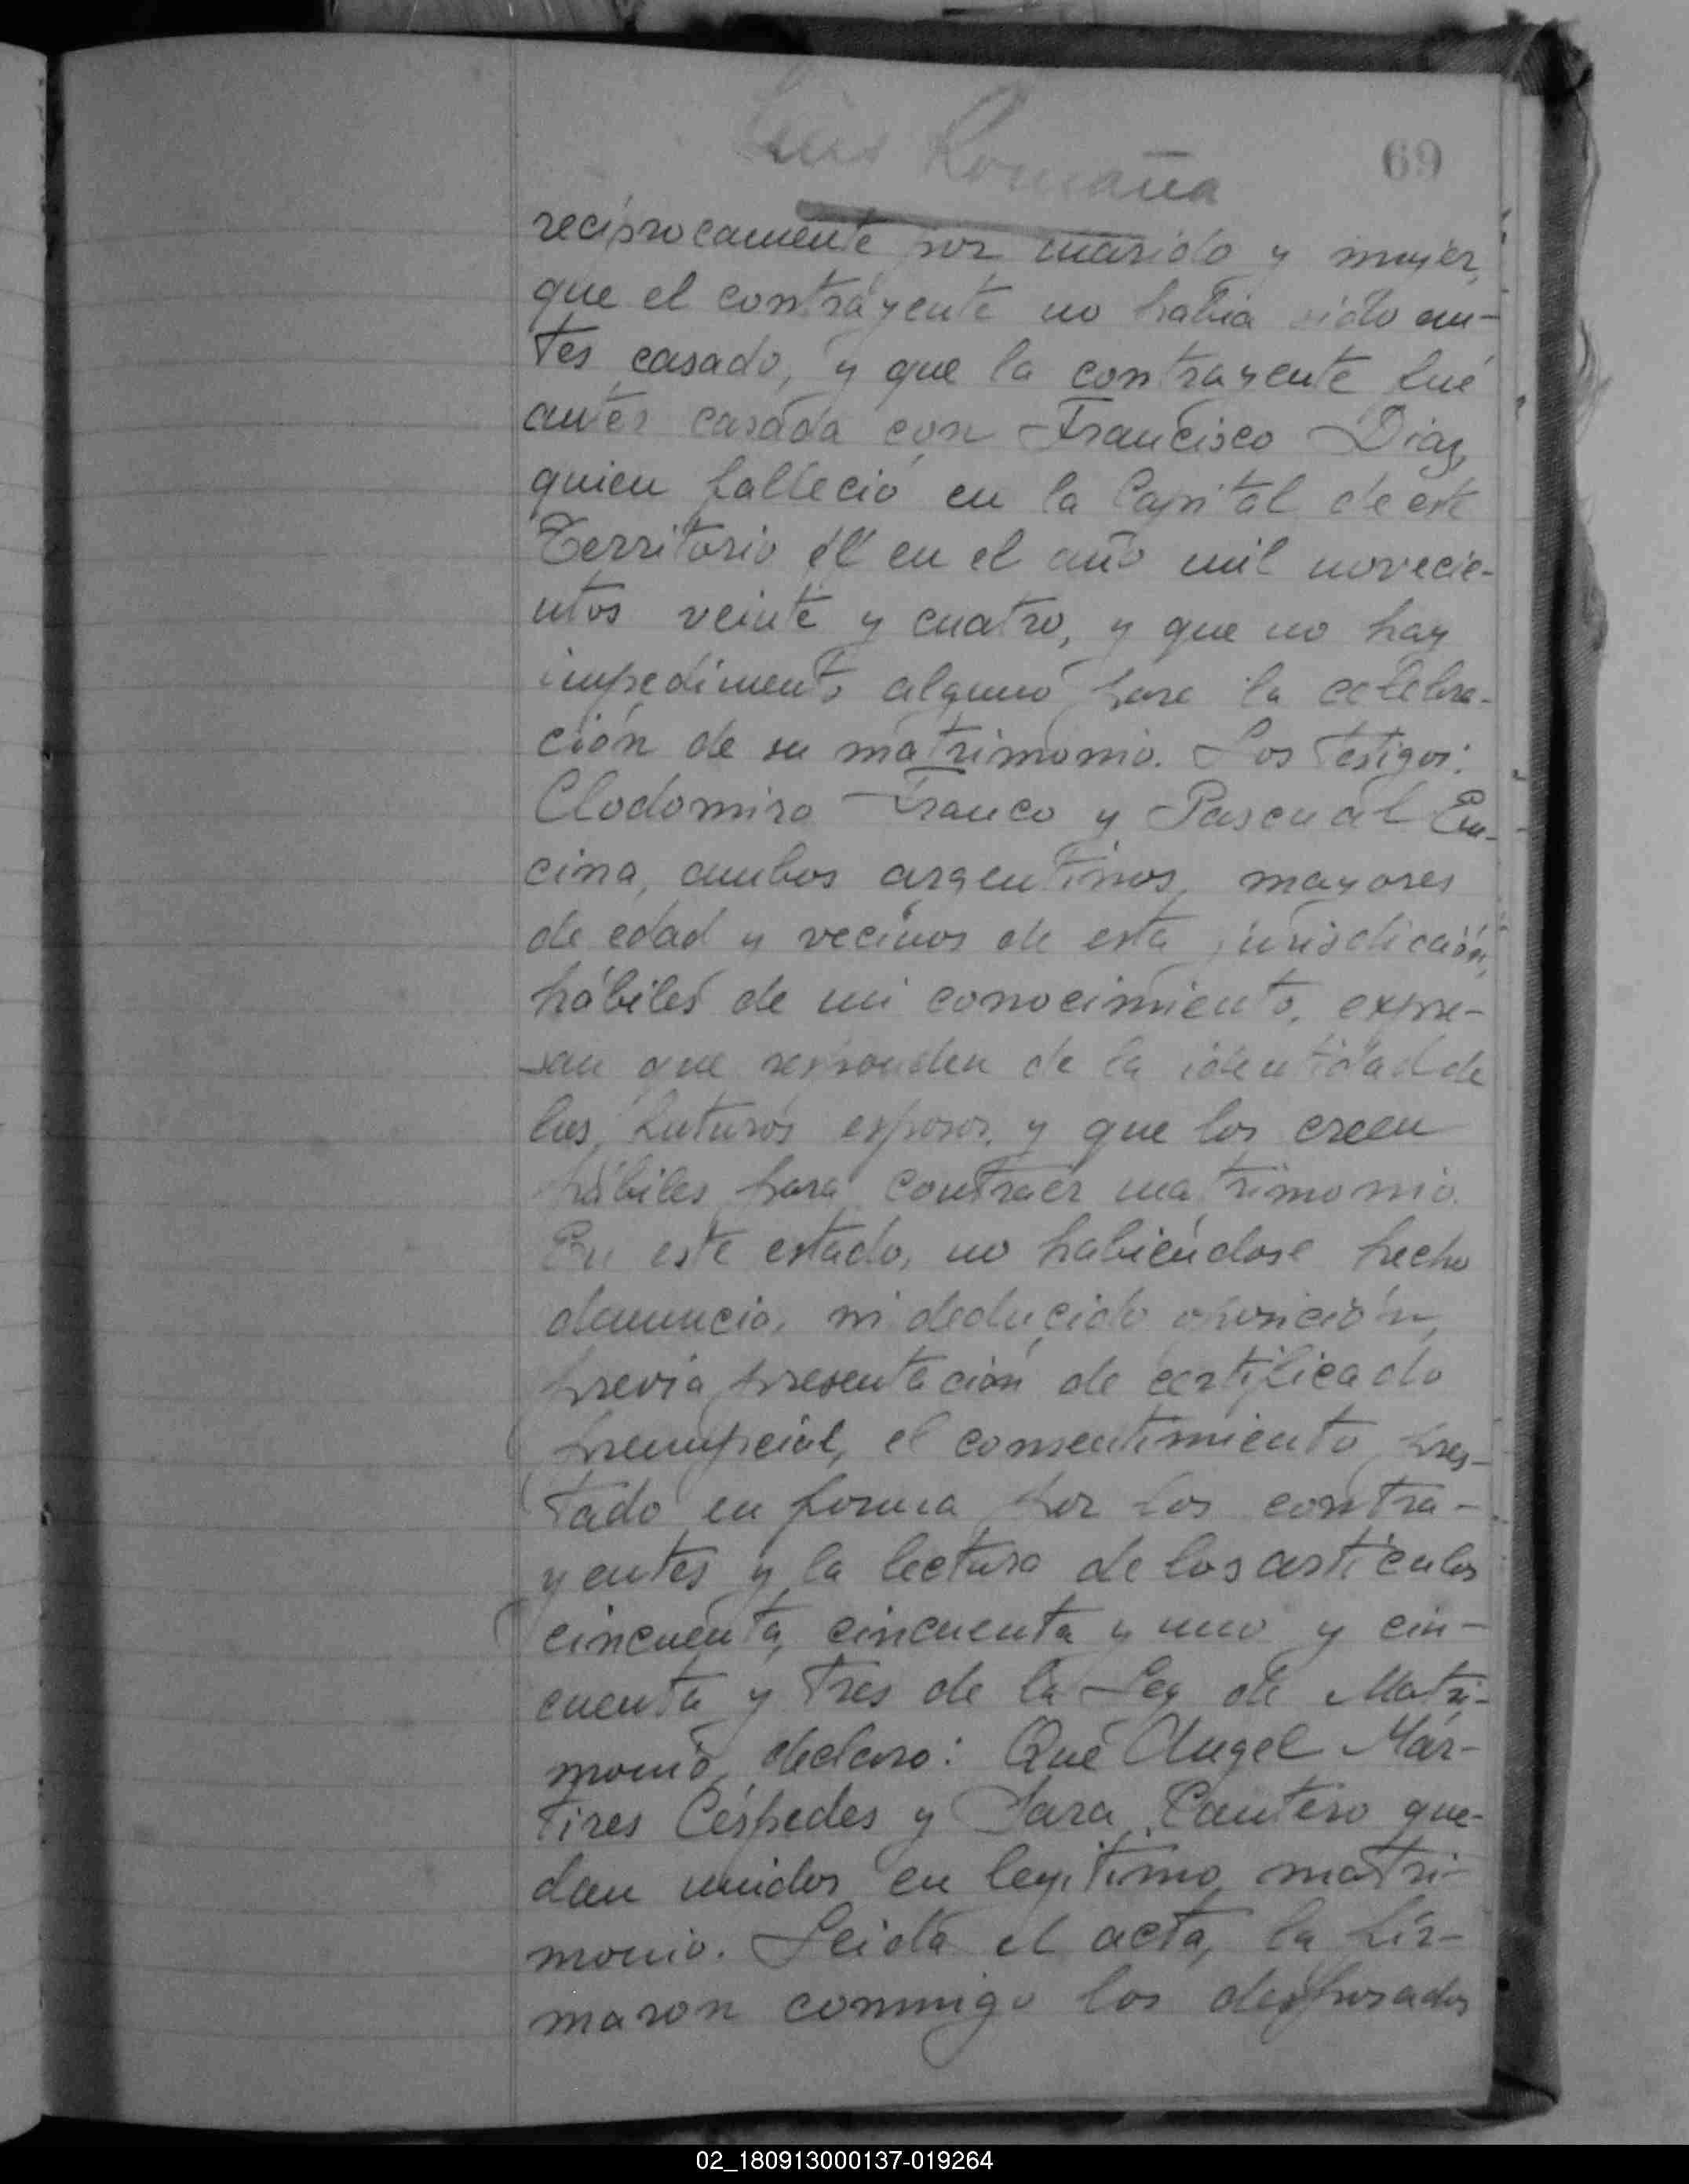 Luis Romaña
69
reciprocamente por marido y mujer,
que el contrayente no habia sido an-
tes casado, y que la contrayente fué
antes casada con Francisco Diaz,
quien falleció en la Capital de este
Territorio él en el año mil novecie-
ntos veinte y cuatro, y que no hay
impedimento alguno para la celebra-
ción de su matrimonio. Los testigos:
Clodomiro Franco y Pascual En-
cina, ambos argentinos, mayores
de edad y vecinos de esta jurisdicción,
hábiles de mi conocimiento, expre-
san que responden de la identidad de
los futuros esposos, y que los creen
hábiles para contraer matrimonio.
En este estado, no habiéndose hecho
denuncia, ni deducido oposición,
previa presentación de certificado
prenupcial, el consentimiento pres-
tado en forma por los contra-
yentes y la lectura de los articulos
cincuenta, cincuenta y uno y cin-
cuenta y tres de la Ley de Matri-
monio, declaro: Que Angel Már-
tires Céspedes y Sara Cantero que-
dan unidos en legitimo matri-
monio. Leida el acta, la fir-
maron conmigo los desposados
02_180913000137-019264